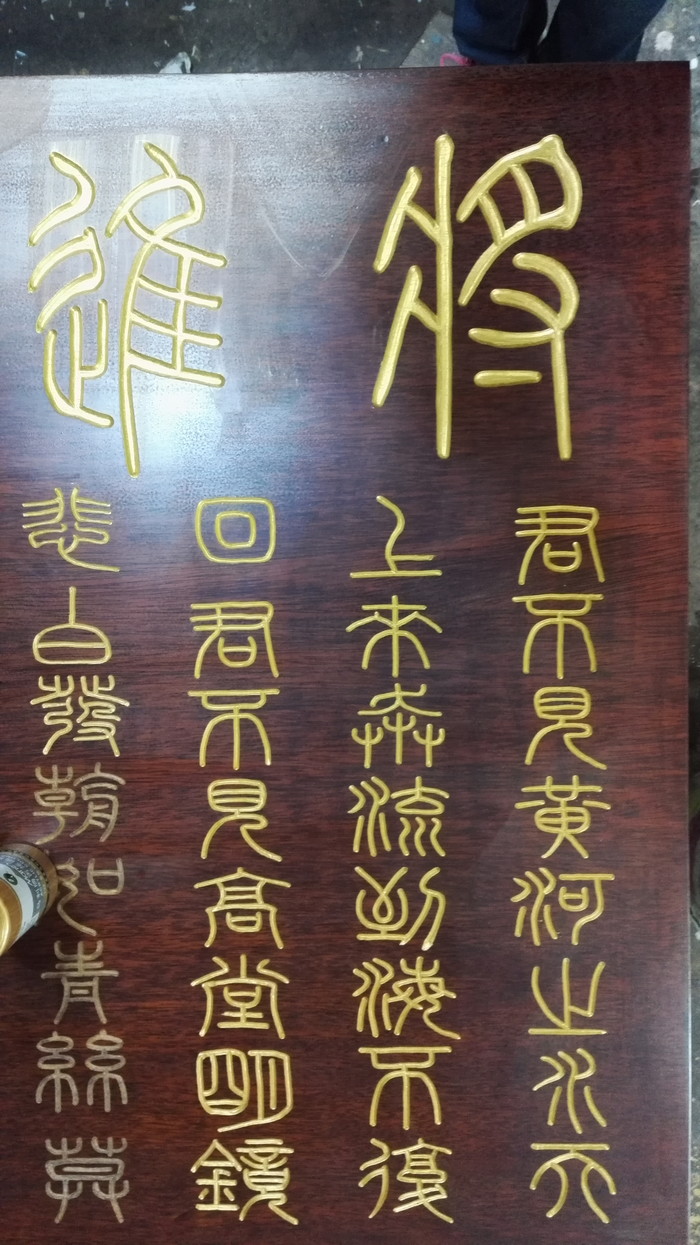 將進
君不見黃河之水天
上來奔流到海不復
回君不見高堂明鏡
悲白發朝如青絲莫